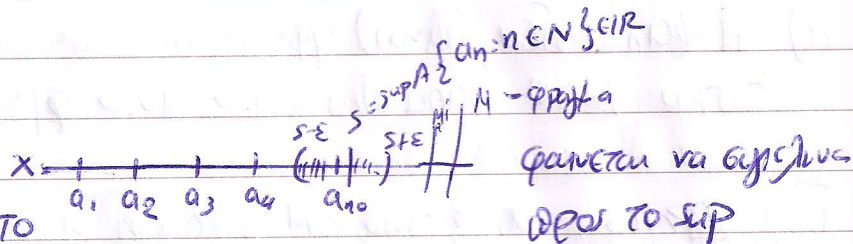 s = sup A {an : n ∈ N} ∈ IR
s-ε s+ε M1 M - φραγμα
X a1 a2 a3 a4 an0 φαινεται να συγκλινει
ΤΟ προς το sup